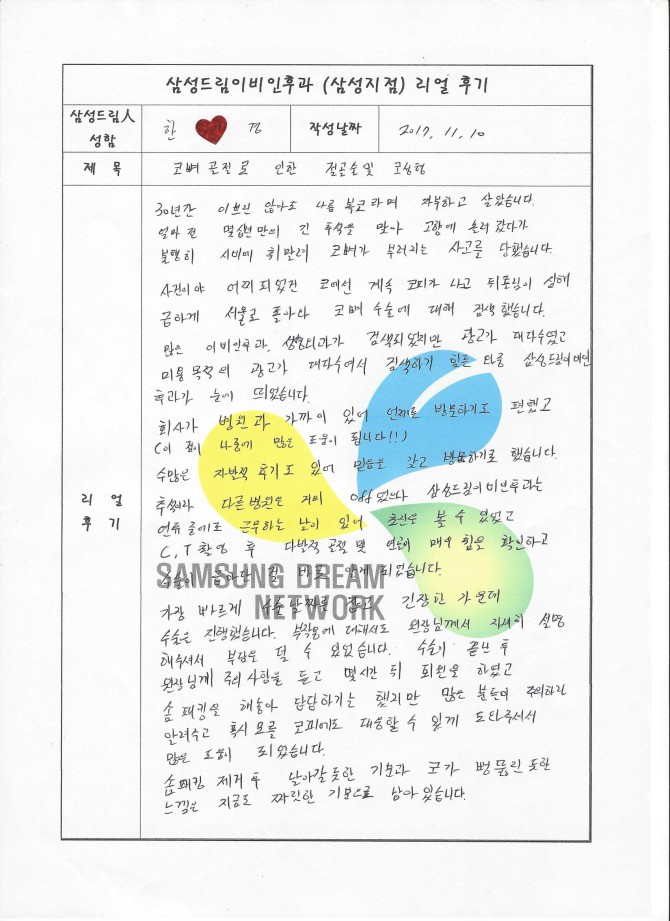 삼성드림이비인후과 (삼성지점) 리얼 후기
삼성드림人
성함
한 경
작성날짜
2017. 11. 10
제 목
코뼈 골절로 인한 절골술 및 코성형
리 얼
후 기
30년간 이쁘진 않아도 나름 복코라며 자부하고 살았습니다.
얼마 전 몇십년만의 긴 추석을 맞아 고향에 놀러 갔다가
불행히 시비에 휘말려 코뼈가 부러지는 사고를 당했습니다.
사건이야 어찌 되었건 코에선 계속 코피가 나고 뒤틀림이 심해
급하게 서울로 돌아와 코뼈 수술에 대해 검색했습니다.
많은 이비인후과, 성형외과가 검색되었지만 광고가 대다수였고
미용 목적의 광고가 대다수여서 검색하기 힘든 타중 삼성드림이비인
후과가 눈에 띄었습니다.
회사가 병원과 가까이 있어 언제든 방문하기도 편했고
(이 점이 나중에 많은 도움이 됩니다!!)
수많은 자반적 후기도 있어 믿음을 갖고 방문하기로 했습니다.
추석이라 다른병원은 거의 off였으나 삼성드림이비인후과는
연휴 중에도 근무하는 날이 있어 혼선을 볼 수 있었고
C.T 촬영 후 다발적 골절 및 매우 휨을 확인하고
수술이 급하다 걸 바로 알게 되었습니다.
SAMSUNG DREAM
NETWORK
가장 빠르게 수술날짜를 잡고 긴장한 가운데
수술은 진행했습니다. 부작용에 대해서도 원장님께서 자세히 설명
해주셔서 부담을 덜 수 있었습니다. 수술이 끝난 후
원장님께 주의사항을 듣고 몇시간 뒤 퇴원을 하였고
솜패킹을 해놓아 답답하기는 했지만 많은 분들이 주의하라
알려주고 혹시 모를 코피에도 대응할 수 있게 도와주셔서
많은 도움이 되었습니다.
솜패킹 제거 후 날아갈듯한 기분과 코가 뻥뚫린 듯한
느낌은 지금도 짜릿한 기분으로 남아있습니다.